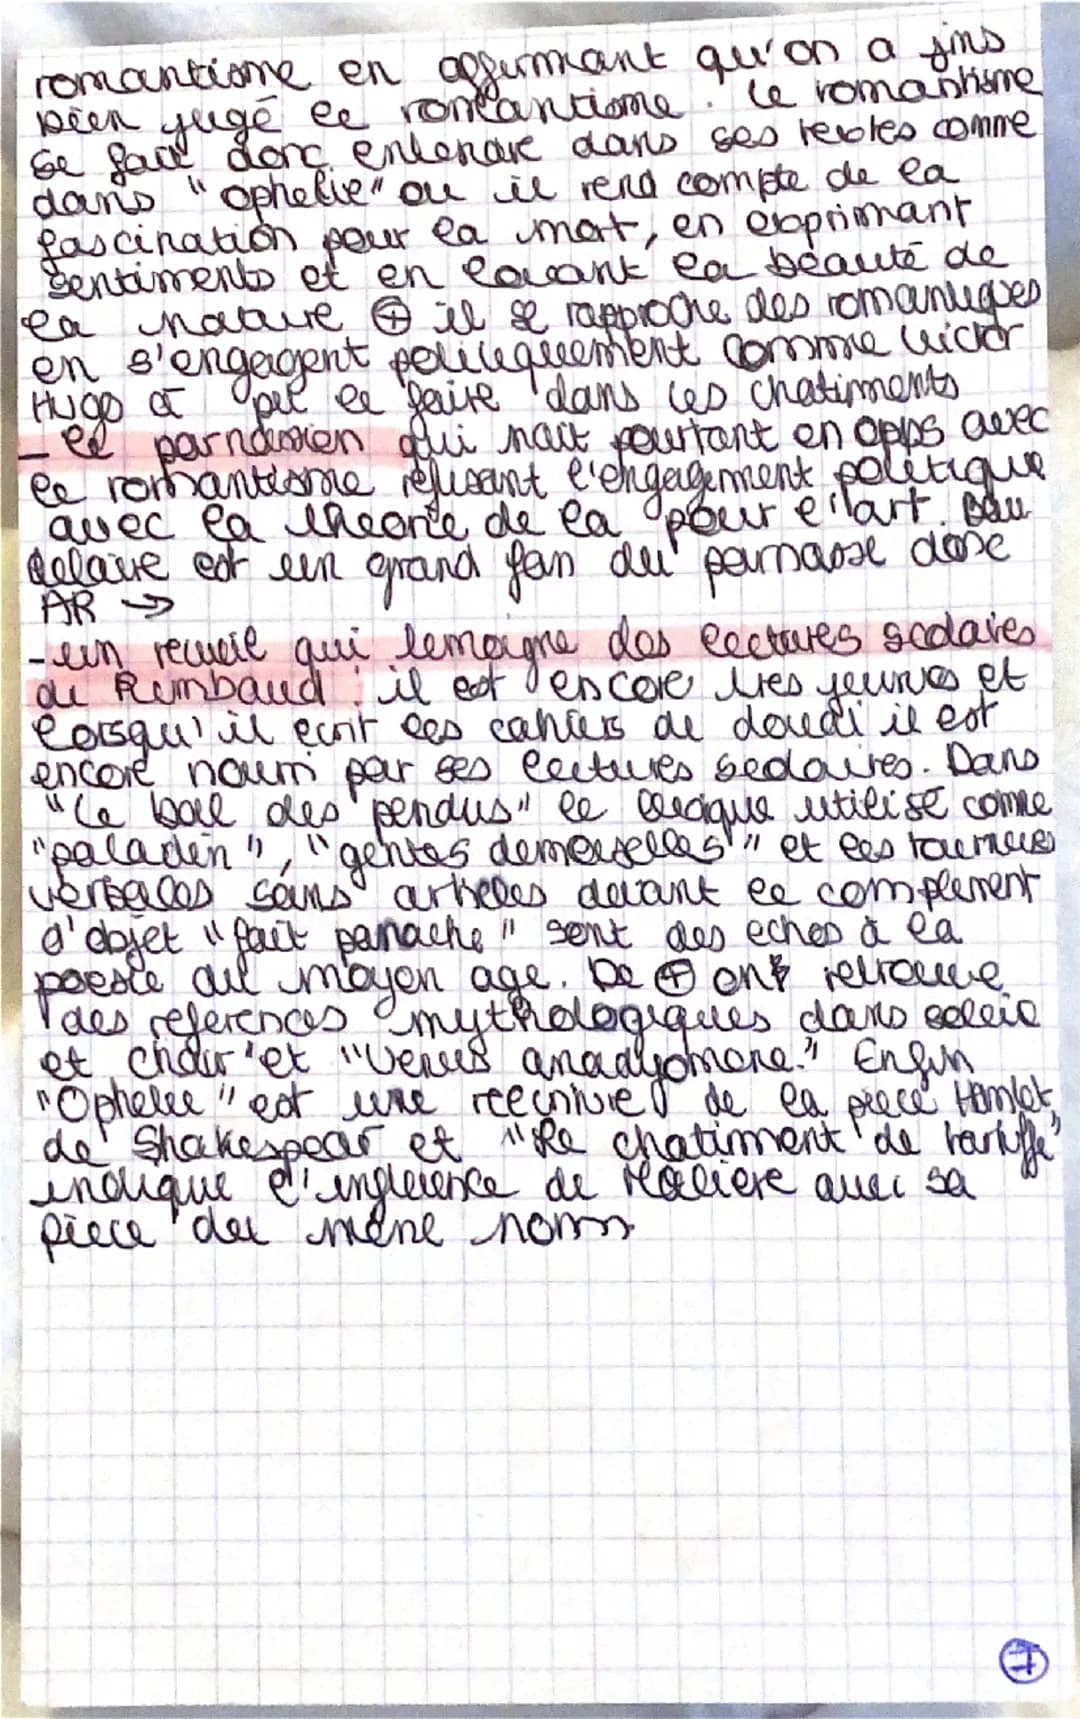 romantisme en affirmant qu'on a jms
bien jugé le romantisme. Le romantisme
se fait donc entendre dans ses textes comme
dans "ophelie" ou il rend compte de la
fascination pour la mort, en exprimant
sentiments et en louant la beauté de
la nature ⊕ il se rapproche des romantiques
en s'engagent politiquement comme Victor
Hugo a pu le faire dans les chatiments
- le parnassien qui nait pourtant en opps avec
le romantisme refusant l'engagement politique
avec la theorie de la pour l'art. Bau
delaire est un grand fan du parnasse donc
AR →
- un recueil qui temoigne des lectures scolaires
de Rimbaud : il est encore tres jeunes et
lorsqu'il ecrit les cahiers de douai il est
encore nourri par ses lectures scolaires. Dans
"Le bal des pendus" le lexique utilisé comme
"paladin", "gentes demoiselles" et les tournures
verbales sans articles devant le complement
d'objet "fait panache" sont des echos à la
poesie du moyen age. De ⊕ on retrouve
des references mythologiques dans soleil
et chair" et "Venus anadyomene." Enfin
"Ophelie" est une reecriture de la piece Hamlet
de Shakespear et "Le chatiment de tartuffe"
indique l'influence de Molière avec sa
pièce du même noms
7